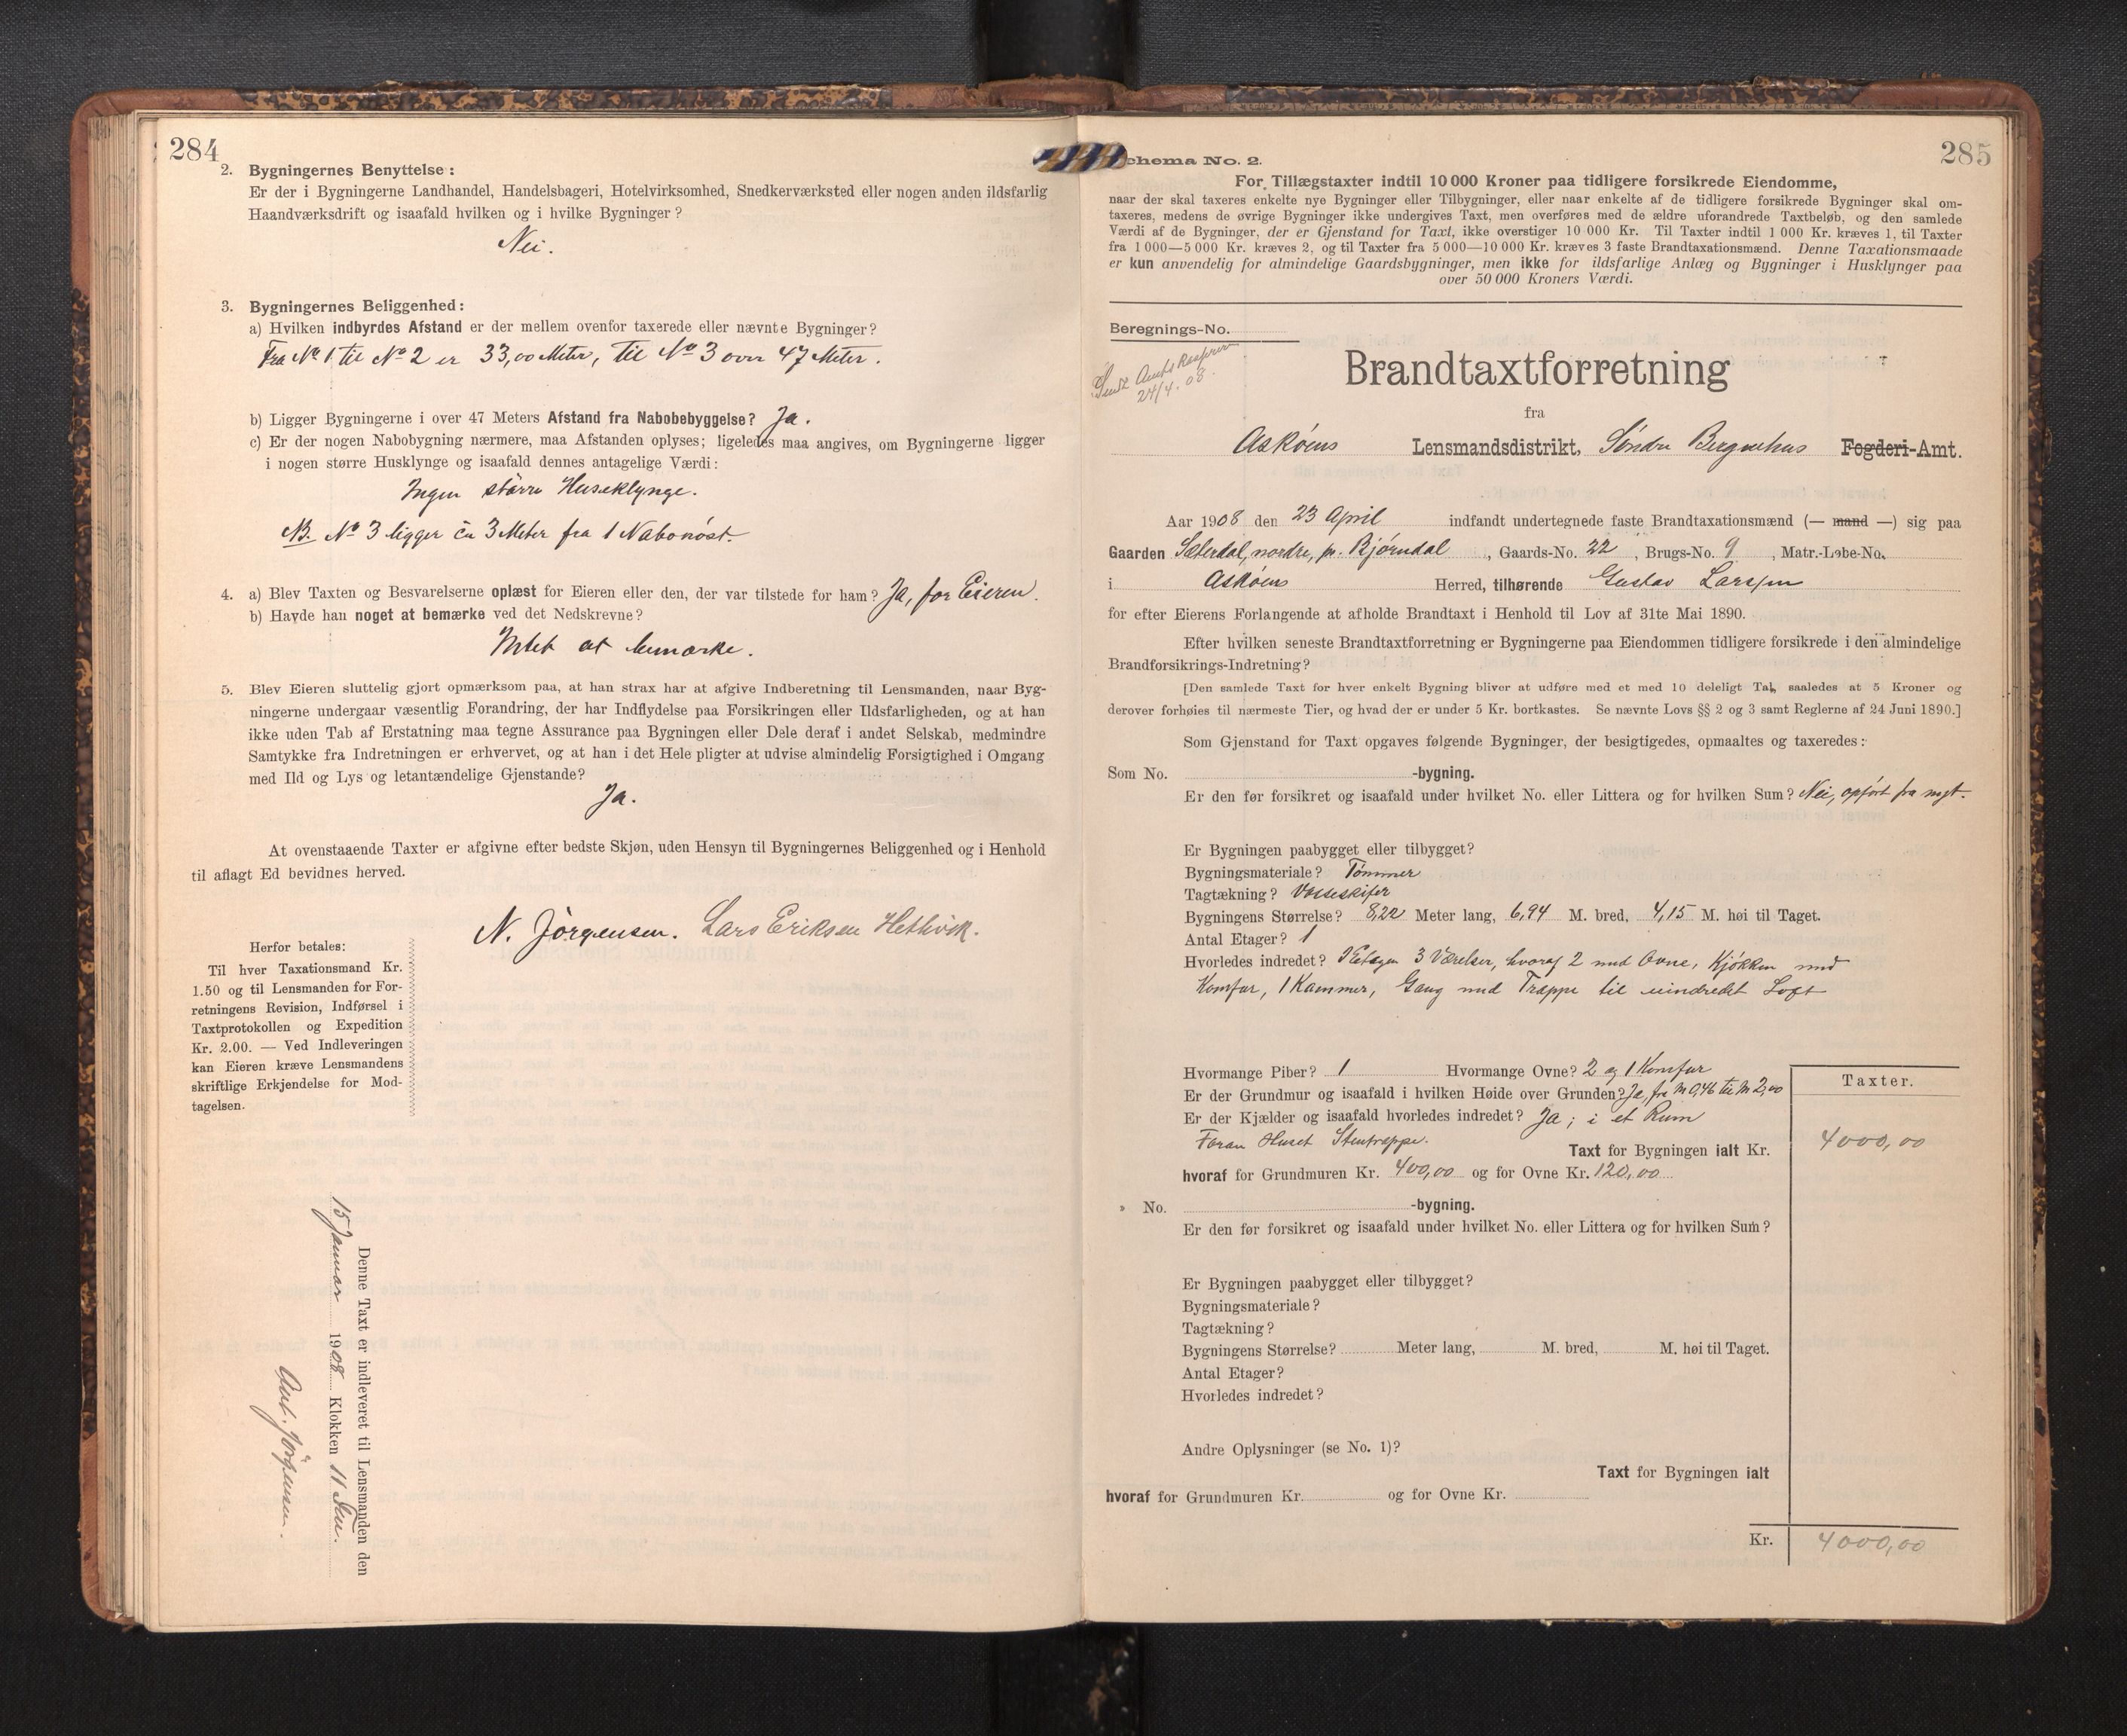 284
2. Bygningernes Benyttelse:
Er der i Bygningerne Landhandel, Handelsbageri, Hotelvirksomhed, Snedkerværksted eller nogen anden ildsfarlig
Haandværksdrift og isaafald hvilken og i hvilke Bygninger?
Nei.
3. Bygningernes Beliggenhed:
a) Hvilken indbyrdes Afstand er der mellem ovenfor taxerede eller nævnte Bygninger?
Fra No 1 til No 2 er 33,00 Meter, til No 3 over 47 Meter.
b) Ligger Bygningerne i over 47 Meters Afstand fra Nabobebyggelse? Ja.
c) Er der nogen Nabobygning nærmere, maa Afstanden oplyses; ligeledes maa angives, om Bygningerne ligger
i nogen større Husklynge og isaafald dennes antagelige Værdi:
Ingen större Huseklynge.
NB. No 3 ligger ca 3 Meter fra 1 Nabonöst.
4. a) Blev Taxten og Besvarelserne oplæst for Eieren eller den, der var tilstede for ham? Ja, for Eieren.
b) Havde han noget at bemærke ved det Nedskrevne?
Intet at bemærke.
5. Blev Eieren sluttelig gjort opmærksom paa, at han strax har at afgive Indberetning til Lensmanden, naar Byg-
ningerne undergaar væsentlig Forandring, der har Indflydelse paa Forsikringen eller Ildsfarligheden, og at han
ikke uden Tab af Erstatning maa tegne Assurance paa Bygningen eller Dele deraf i andet Selskab, medmindre
Samtykke fra Indretningen er erhvervet, og at han i det Hele pligter at udvise almindelig Forsigtighed i Omgang
med Ild og Lys og letantændelige Gjenstande?
Ja.
At ovenstaaende Taxter er afgivne efter bedste Skjøn, uden Hensyn til Bygningernes Beliggenhed og i Henhold
til aflagt Ed bevidnes herved.
N. Jörgensen. Lars Eriksen Hethvik.
Herfor betales:
Til hver Taxationsmand Kr.
1.50 og til Lensmanden for For-
retningens Revision, Indførsel i
Taxtprotokollen og Expedition
Kr. 2.00. — Ved Indleveringen
kan Eieren kræve Lensmandens
skriftlige Erkjendelse for Mod-
tagelsen.
Denne Taxt er indleveret til Lensmanden den
15 Januar 1908 Klokken 11 Fm.
Ant. Jörgensen.
285
Schema No. 2.
For Tillægstaxter indtil 10 000 Kroner paa tidligere forsikrede Eiendomme,
naar der skal taxeres enkelte nye Bygninger eller Tilbygninger, eller naar enkelte af de tidligere forsikrede Bygninger skal om-
taxeres, medens de øvrige Bygninger ikke undergives Taxt, men overføres med de ældre uforandrede Taxtbeløb, og den samlede
Værdi af de Bygninger, der er Gjenstand for Taxt, ikke overstiger 10 000 Kr. Til Taxter indtil 1 000 Kr. kræves 1, til Taxter
fra 1 000—5 000 Kr. kræves 2, og til Taxter fra 5 000—10 000 Kr. kræves 3 faste Brandtaxationsmænd. Denne Taxationsmaade
er kun anvendelig for almindelige Gaardsbygninger, men ikke for ildsfarlige Anlæg og Bygninger i Husklynger paa
over 50 000 Kroners Værdi.
Beregnings-No.
Sendt
24/4. 08.
Brandtaxtforretning
fra
Asköens Lensmandsdistrikt, Söndre Bergenhus Fogderi-Amt.
Aar 1908 den 23 April indfandt undertegnede faste Brandtaxationsmænd (— mand —) sig paa
Gaarden Sæterdal, nordre, pr. Björndal, Gaards-No. 22, Brugs-No. 9, Matr.-Løbe-No.
i Asköens Herred, tilhørende Gustav Larssen
for efter Eierens Forlangende at afholde Brandtaxt i Henhold til Lov af 31te Mai 1890.
Efter hvilken seneste Brandtaxtforretning er Bygningerne paa Eiendommen tidligere forsikrede i den almindelige
Brandforsikrings-Indretning?
[Den samlede Taxt for hver enkelt Bygning bliver at udføre med et med 10 deleligt Tal, saaledes at 5 Kroner og
derover forhøies til nærmeste Tier, og hvad der er under 5 Kr. bortkastes. Se nævnte Lovs §§ 2 og 3 samt Reglerne af 24 Juni 1890.]
Som Gjenstand for Taxt opgaves følgende Bygninger, der besigtigedes, opmaaltes og taxeredes:
Som No. -bygning.
Er den før forsikret og isaafald under hvilket No. eller Littera og for hvilken Sum? Nei, opfört fra nyt.
Er Bygningen paabygget eller tilbygget?
Bygningsmateriale? Tömmer
Tagtækning? Vosseskifer
Bygningens Størrelse? 8,22 Meter lang, 6,94 M. bred, 4,15 M. høi til Taget.
Antal Etager? 1
Hvorledes indredet? I Etagen 3 Værelser, hvoraf 2 med Ovne, Kjökken med
Komfur, 1 Kammer, Gang med Trappe til uindredet Loft
Hvormange Piber? 1 Hvormange Ovne? 2 og 1 Komfur
Er der Grundmur og isaafald i hvilken Høide over Grunden? Ja, fra M 0,46 til M 2,00
Er der Kjælder og isaafald hvorledes indredet? Ja; i et Rum
Foran Huset Stentrappe. Taxt for Bygningen ialt Kr.
Taxter.
4000,00
hvoraf for Grundmuren Kr. 400,00 og for Ovne Kr. 120,00
» No. -bygning.
Er den før forsikret og isaafald under hvilket No. eller Littera og for hvilken Sum?
Er Bygningen paabygget eller tilbygget?
Bygningsmateriale?
Tagtækning?
Bygningens Størrelse? Meter lang, M. bred, M. høi til Taget.
Antal Etager?
Hvorledes indredet?
Andre Oplysninger (se No. 1)?
Taxt for Bygningen ialt
hvoraf for Grundmuren Kr. og for Ovne Kr.
Kr. 4000,00